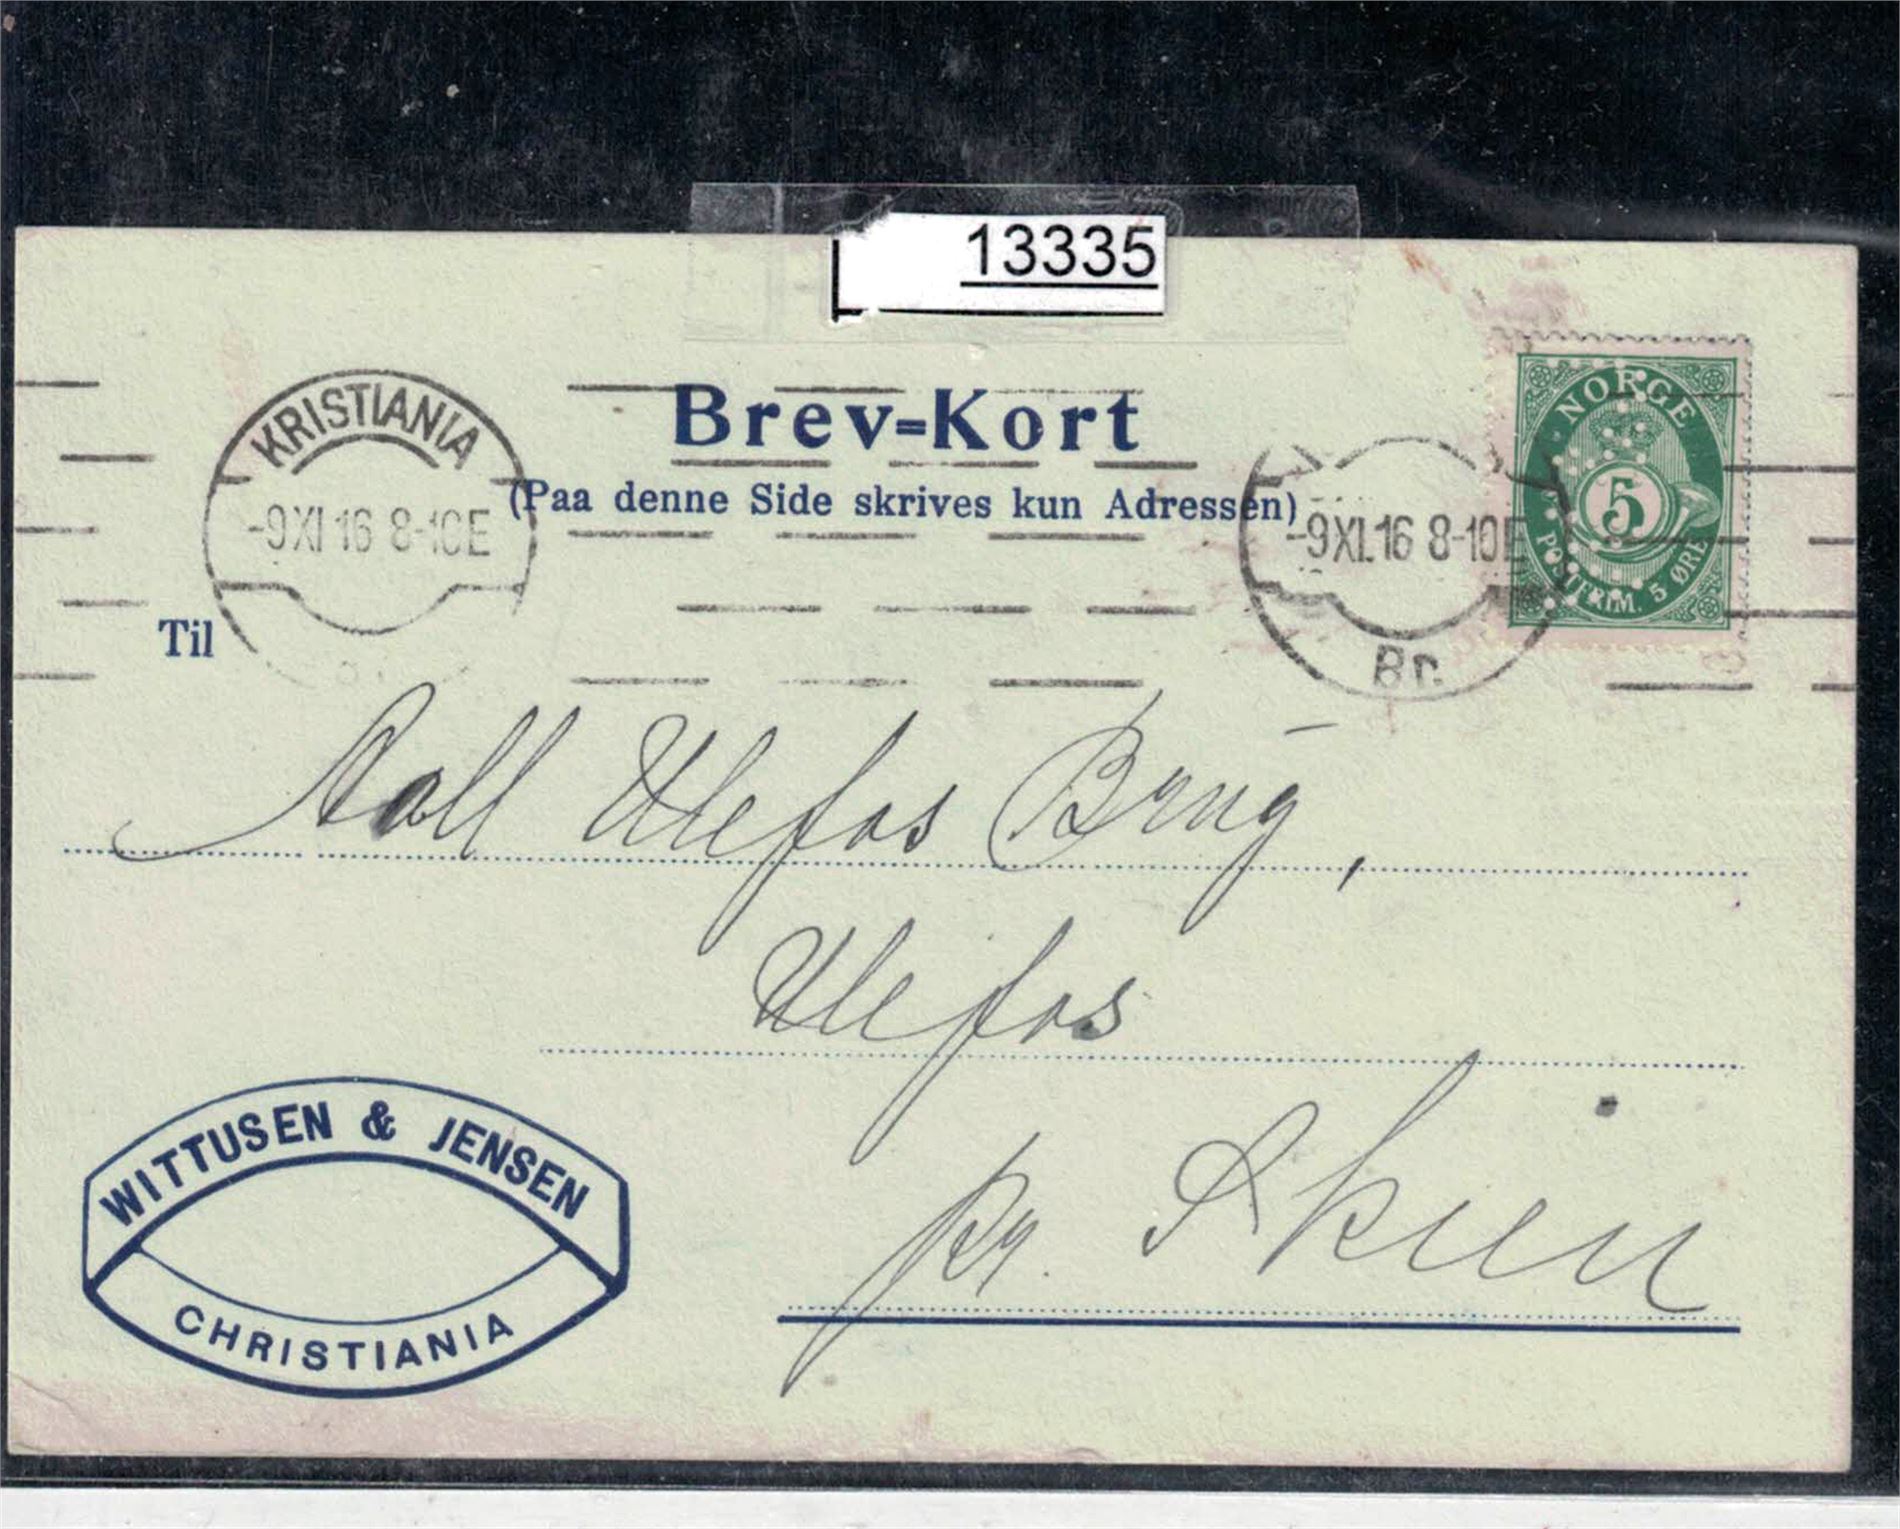 13335
Brev=Kort
(Paa denne Side skrives kun Adressen)
KRISTIANIA
-9 XI 16 8-10 E
-9 XI. 16 8-10 E
Br.
NORGE
5
POSTFRIM. 5 ØRE
Til
Aall Ulefos Brug,
Ulefos
pr. Skien
WITTUSEN & JENSEN
CHRISTIANIA